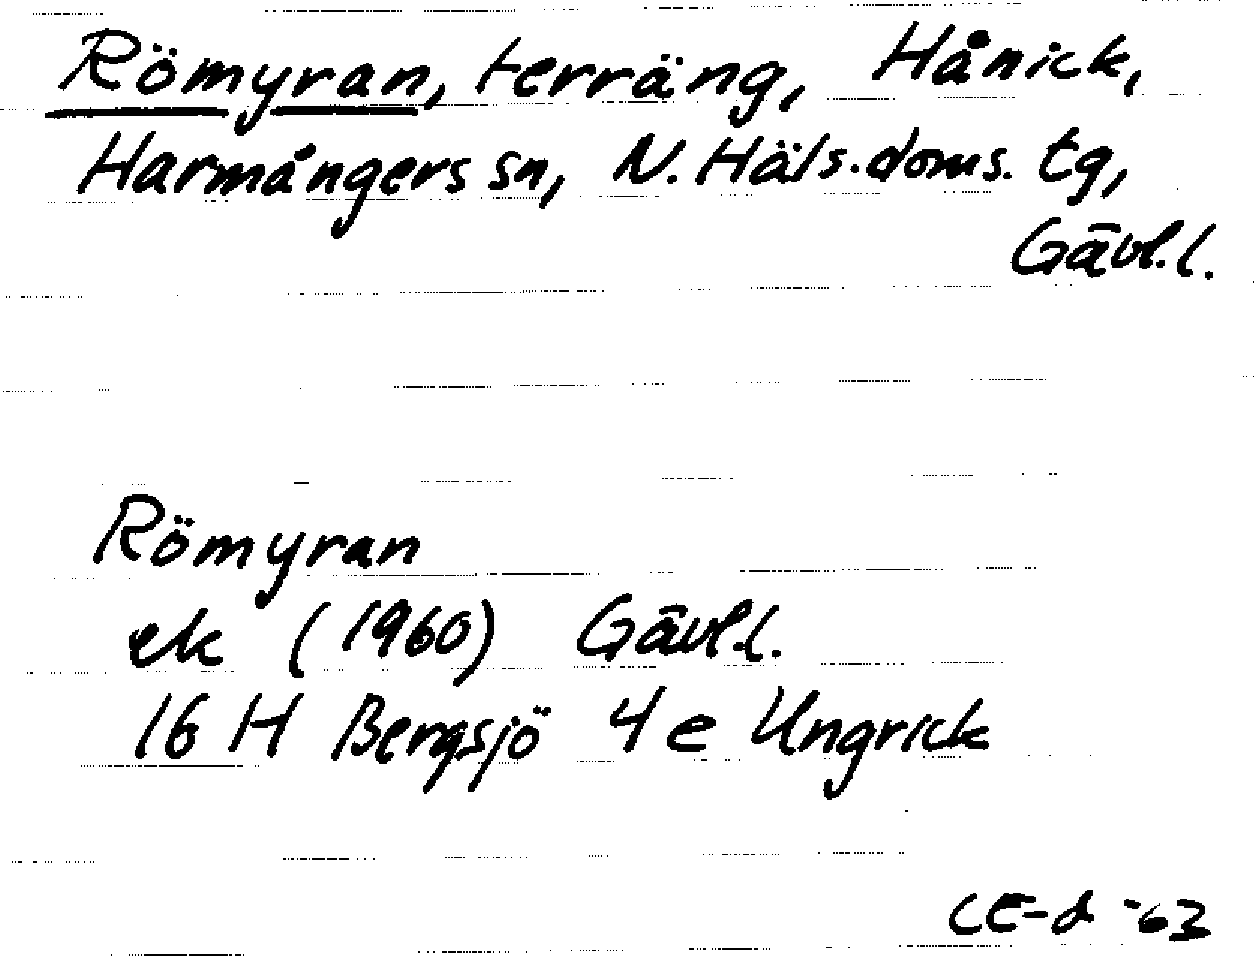 Römyran, terräng, Hånick,
Harmångers sn, N. Häls. doms. tg,
Gävl.l.
Römyran
ek (1960) Gävl.l.
16 H Bergsjö 4 e Ungrick
CE-d -63